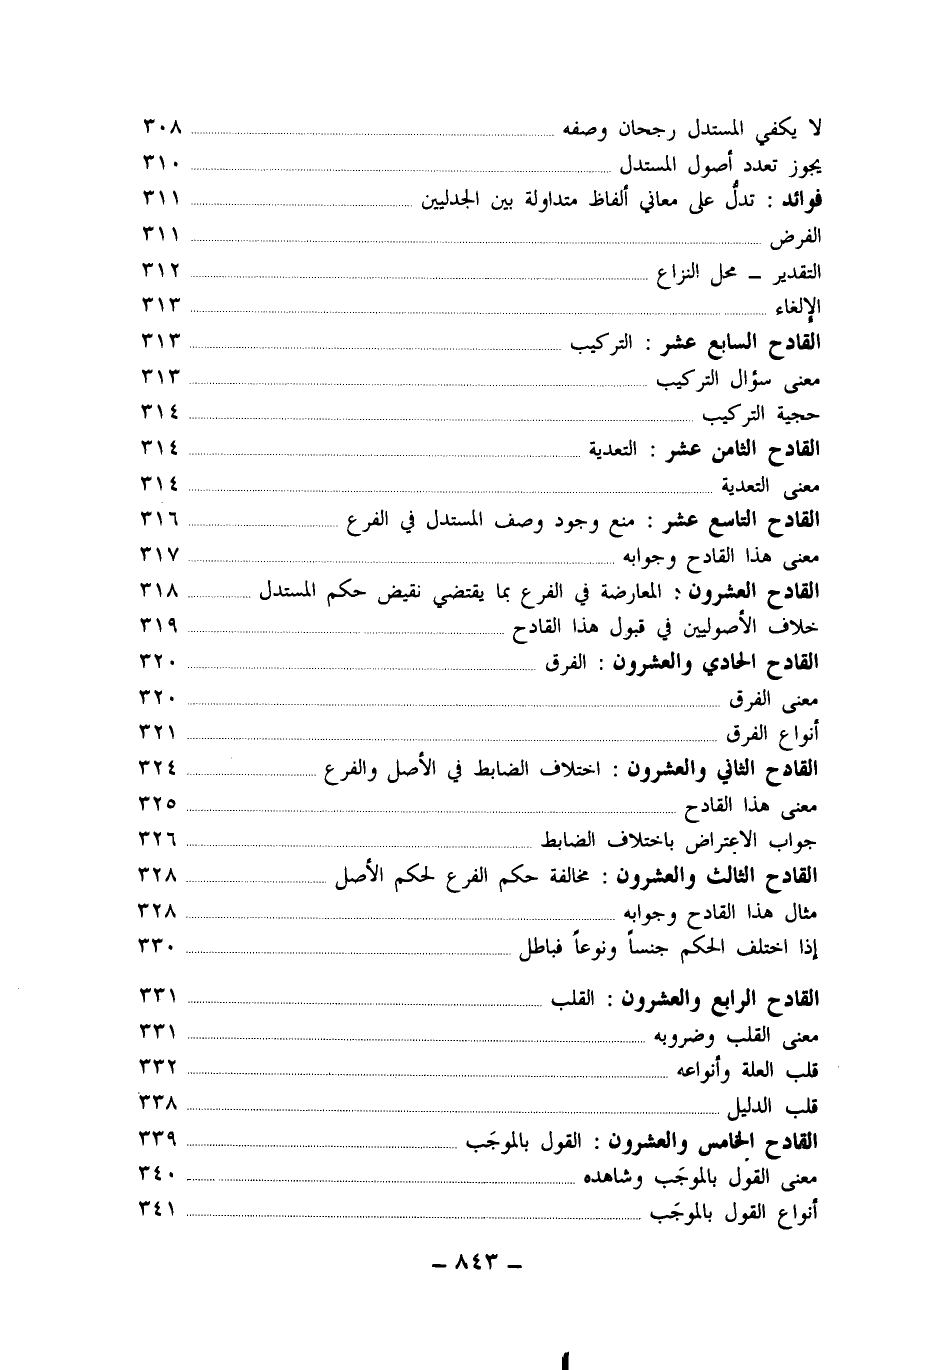 لا يكفي المستدل رجحان وصفه ٣٠٨
يجوز تعدد أصول المستدل ٣١٠
فوائد : تدلُّ على معاني ألفاظ متداولة بين الجدليين ٣١١
الفرض ٣١١
التقدير ـ محل النزاع ٣١٢
الإلغاء ٣١٣
القادح السابع عشر : التركيب ٣١٣
معنى سؤال التركيب ٣١٣
حجية التركيب ٣١٤
القادح الثامن عشر : التعدية ٣١٤
معنى التعدية ٣١٤
القادح التاسع عشر : منع وجود وصف المستدل في الفرع ٣١٦
معنى هذا القادح وجوابه ٣١٧
القادح العشرون : المعارضة في الفرع بما يقتضي نقيض حكم المستدل ٣١٨
خلاف الأصوليين في قبول هذا القادح ٣١٩
القادح الحادي والعشرون : الفرق ٣٢٠
معنى الفرق ٣٢٠
أنواع الفرق ٣٢١
القادح الثاني والعشرون : اختلاف الضابط في الأصل والفرع ٣٢٤
معنى هذا القادح ٣٢٥
جواب الاعتراض باختلاف الضابط ٣٢٦
القادح الثالث والعشرون : مخالفة حكم الفرع لحكم الأصل ٣٢٨
مثال هذا القادح وجوابه ٣٢٨
إذا اختلف الحكم جنساً ونوعاً فباطل ٣٣٠
القادح الرابع والعشرون : القلب ٣٣١
معنى القلب وضروبه ٣٣١
قلب العلة وأنواعه ٣٣٢
قلب الدليل ٣٣٨
القادح الخامس والعشرون : القول بالموجَب ٣٣٩
معنى القول بالموجَب وشاهده ٣٤٠
أنواع القول بالموجَب ٣٤١
ـ ٨٤٣ ـ